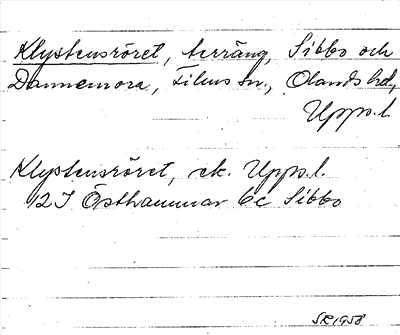 Klystensröret, terräng, Sibbo och
Dannemora, Films sn., Olands hd,
Upps.l.
Klystensröret, ek. Upps.l.
12I Östhammar 6c Sibbo
SR1958